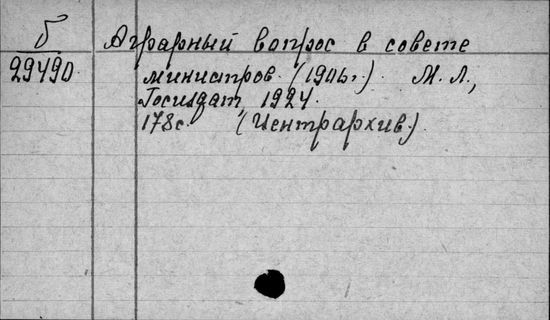 Б
29490.
Аграрный вопрос в совете
министров. (1906г.). М. Л.,
Госиздат, 1924.
178с. (Центрархив.)